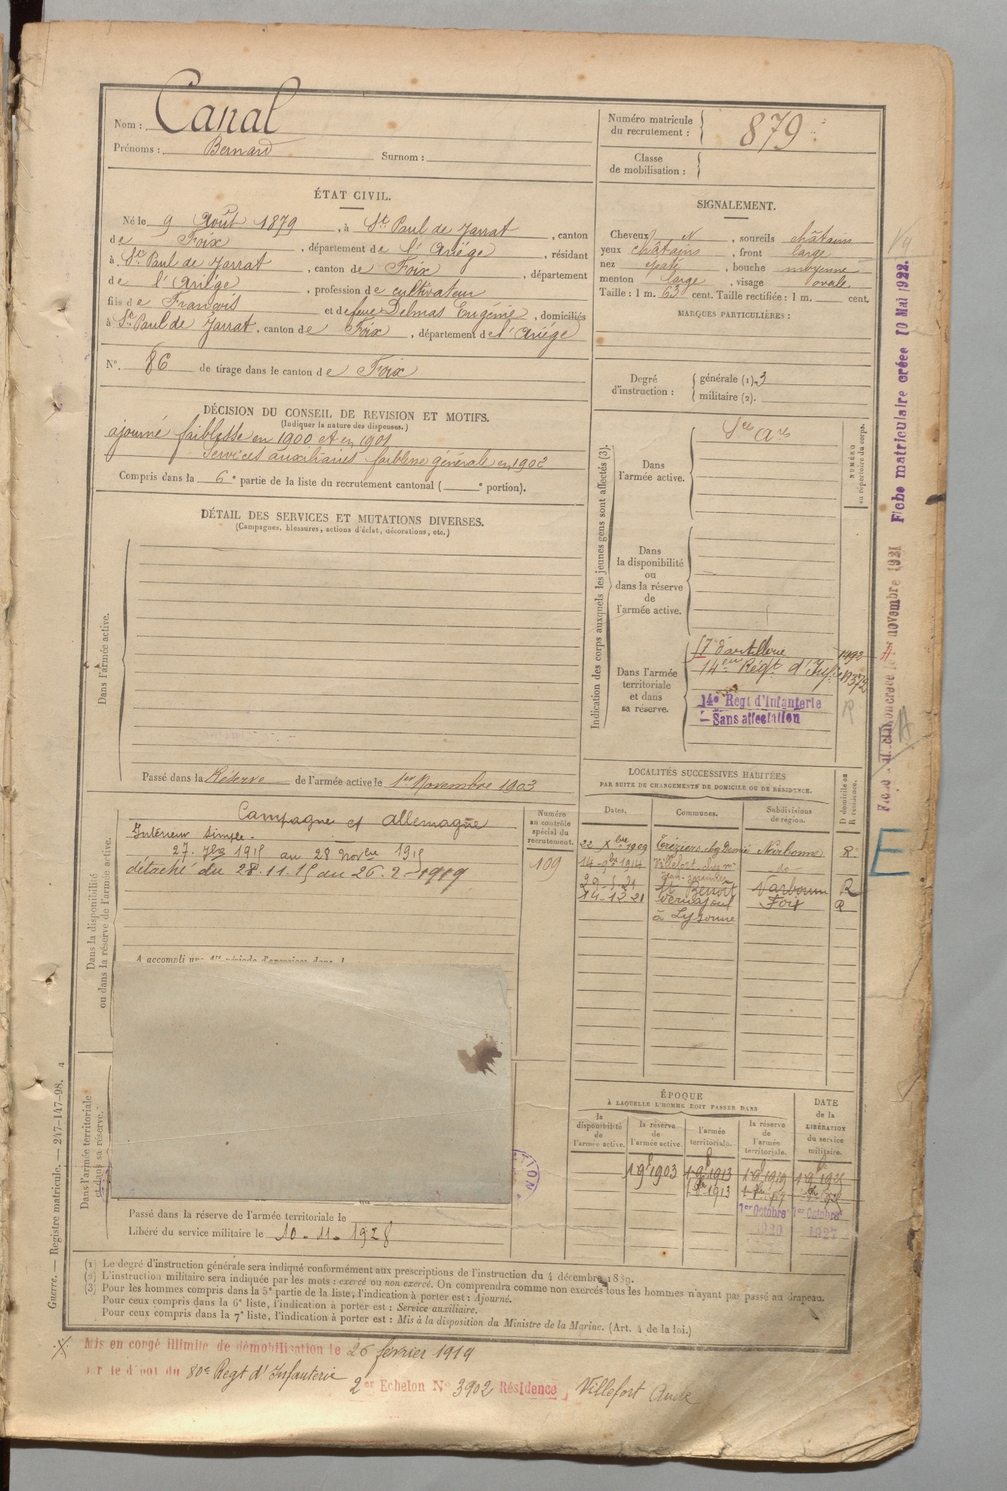 Nom : Canal
Prénoms : Bernard Surnom :
Numéro matricule du recrutement : 879
Classe de mobilisation :
ÉTAT CIVIL.
Né le 9 Août 1879, à St Paul de Jarrat, canton
de Foix, département de l'Ariège, résidant
à St Paul de Jarrat, canton de Foix, département
de l'Ariège, profession de cultivateur
fils de François et de feue Delmas Eugénie, domiciliés
à St Paul de Jarrat, canton de Foix, département de l'Ariège
N° 86 de tirage dans le canton de Foix
SIGNALEMENT.
Cheveux , sourcils châtains
yeux châtains, front large
nez , bouche moyenne
menton large, visage ovale
Taille : 1 m. 63 cent. Taille rectifiée : 1 m. cent.
MARQUES PARTICULIÈRES :
Degré d'instruction : générale (1). 3
militaire (2).
DÉCISION DU CONSEIL DE REVISION ET MOTIFS.
(Indiquer la nature des dispenses.)
ajourné faiblesse en 1900 et en 1901
Services auxiliaires faiblesse générale en 1902
Compris dans la 6e partie de la liste du recrutement cantonal ( e portion).
DÉTAIL DES SERVICES ET MUTATIONS DIVERSES.
(Campagnes, blessures, actions d'éclat, décorations, etc.)
Dans l'armée active.
Passé dans la Réserve de l'armée active le 1er Novembre 1903
Indication des corps auxquels les jeunes gens sont affectés (3).
NUMÉRO au répertoire du corps.
Dans l'armée active.
Dans la disponibilité ou dans la réserve de l'armée active.
Dans l'armée territoriale et dans sa réserve.
d'artillerie
14e Régt d'Inf
14e Regt d'Infanterie
Sans affectation
Dans la disponibilité ou dans la réserve de l'armée active.
Campagne c/ Allemagne
Intérieur simple.
27. 7bre 1915 au 28 Novbre 1915
détaché du 28.11.15 au 26.2.1919
A accompli une 1re période d'exercices dans l
Numéro au contrôle spécial du recrutement.
109
LOCALITÉS SUCCESSIVES HABITÉES
PAR SUITE DE CHANGEMENTS DE DOMICILE OU DE RÉSIDENCE.
Dates. Communes. Subdivisions de région. D domicile ou R résidence.
22 Xbre 1909 Narbonne R.
Villefort
St Benoît Narbonne R
14-12-21 Foix R
Dans l'armée territoriale et dans sa réserve.
ÉPOQUE
À LAQUELLE L'HOMME DOIT PASSER DANS
la disponibilité de l'armée active. la réserve de l'armée active. l'armée territoriale. la réserve de l'armée territoriale.
DATE de la LIBÉRATION du service militaire.
1 9b 1903 1 9b 1913 1 9b 1919
1er Octobre 1er Octobre
1927
Passé dans la réserve de l'armée territoriale le
Libéré du service militaire le 10-11-1928
(1) Le degré d'instruction générale sera indiqué conformément aux prescriptions de l'instruction du 4 décembre 1889.
(2) L'instruction militaire sera indiquée par les mots : exercé ou non exercé. On comprendra comme non exercés tous les hommes n'ayant pas passé au drapeau.
(3) Pour les hommes compris dans la 5e partie de la liste, l'indication à porter est : Ajourné.
Pour ceux compris dans la 6e liste, l'indication à porter est : Service auxiliaire.
Pour ceux compris dans la 7e liste, l'indication à porter est : Mis à la disposition du Ministre de la Marine. (Art. 4 de la loi.)
Mis en congé illimité de démobilisation le 26 février 1919
par le dépôt du 80e Regt d'Infanterie
2e Echelon N° 3902 Résidence Villefort Aude
Guerre. — Registre matricule. — 247-147-98.
Fiche matriculaire créée 10 Mai 1922.
novembre 1921
E